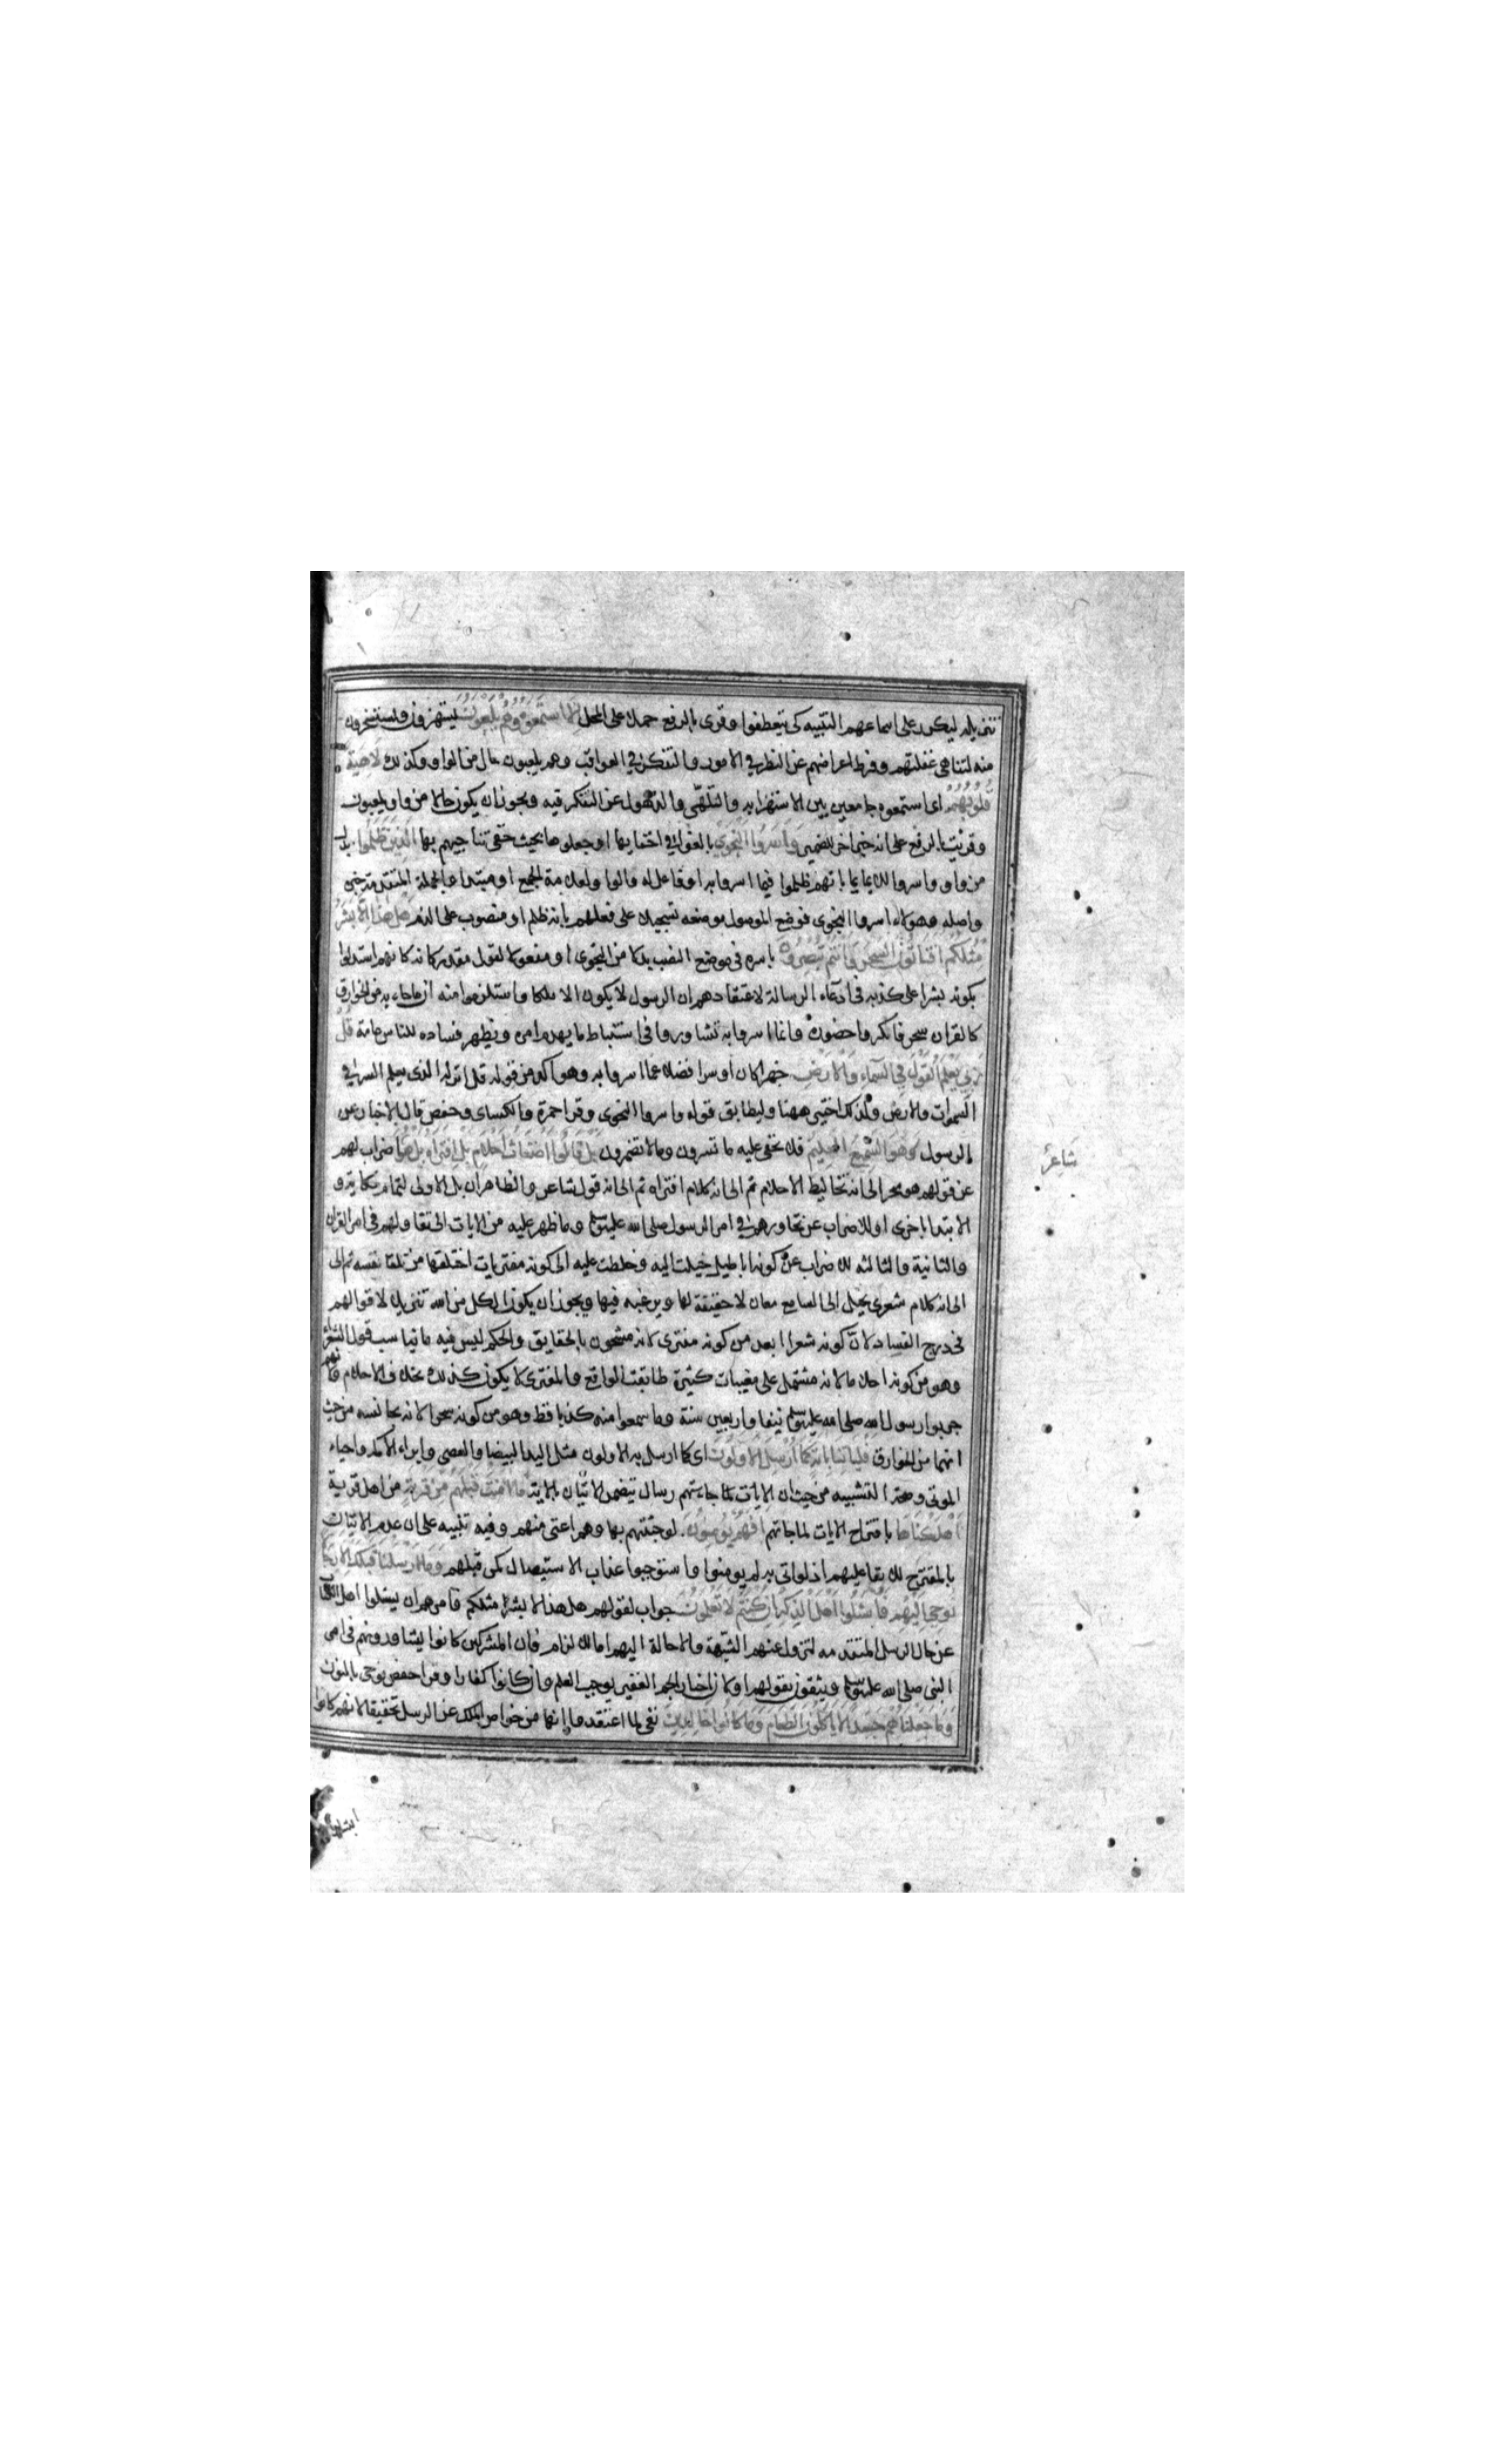 تنزيله ليكرر على اسماعهم التنبيه كى يتعظوا وقرى بالرفع حملا على المحل الا استمعوه وهم يلعبون يستهزؤن ويستسخرون
منه لتناهى غفلتهم وفرط اعراضهم عن النظر في الامور والتفكر في العواقب وهم يلعبون حال من الواو وكذلك لاهية
قلوبهم اى استمعوه جامعين بين الاستهزا به والتلهى والذهول عن التفكر فيه ويجوز ان يكون حالا من واو يلعبون
وقرئت بالرفع على انه خبر اخر للضمير واسروا النجوى بالغوا في اخفايها او جعلوها بحيث خفى تناجيهم بها الذين ظلموا بدل
من واو واسروا للايما بانهم ظلموا فيما اسروا به او فاعل له والواو لعلامة الجمع او مبتدا والجملة المتقدمة خبره
واصله وهولاء اسروا النجوى فوضع الموصول موضعه تسجيلا على فعلهم بانه ظلم او منصوب على الذم هل هذا الا بشر
مثلكم افتاتون السحر وانتم تبصرون باسره فى موضع النصب بدلا من النجوى او مفعولا لقول مقدر كانه كانهم استدلوا
بكونه بشرا على كذبه فى ادعاء الرسالة لاعتقادهم ان الرسول لا يكون الا ملكا واستلزموا منه ان ما جاء به من الخوارق
كالقران سحر فانكروا حضوره وانما اسروا به تشاورا فى استنباط ما يهدم امره ويظهر فساده للناس عامة قل
ربي يعلم القول في السماء والارض جهرا كان او سرا فضلا عما اسروا به وهو اكد من قوله قل انزله الذى يعلم السر في
السموات والارض ولذلك اختير ههنا وليطابق قوله واسروا النجوى وقرا حمزة والكساى وحفص قال بالاخبار عن
الرسول وهو السميع العليم فلا يخفى عليه ما تسرون وما لا تضمرون بل قالوا اضغاث احلام بل افتراه بل هو اضراب لهم
شاعر
عن قولهم هو سحر الى انه تخاليط الاحلام ثم الى انه كلام افتراه ثم الى انه قول شاعر والظاهر ان بل الاولى لتمام حكاية و
الابتدا باخرى او للاضراب عن تحاورهم في امر الرسول صلى الله عليه وسلم وما ظهر عليه من الايات الى تقاولهم فى امر القران
والثانية والثالثه للاضراب عن كونه اباطيل خيلت اليه وخلطت عليه الى كونه مفتريات اختلقها من تلقا نفسه ثم الى
الى انه كلام شعرى يخيل الى السامع معان لا حقيقة لها ويرغبه فيها ويجوز ان يكون الكل من الله تنزيلا لاقوالهم
فى درج الفساد لان كونه شعرا ابعد من كونه مفترى لانه مشحون بالحقايق والحكم ليس فيه ما يناسب قول الشعرا
وهو من كونه احلاما لانه مشتمل على مغيبات كثيرة طابقت الواقع والمفترى لا يكون كذلك بخلاف الاحلام ولانهم
جربوا رسول الله صلى الله عليه وسلم نيفا واربعين سنة وما سمعوا منه كذبا قط وهو من كونه سحرا لانه يجانسه من حيث
انهما من الخوارق فلياتنا باية كما ارسل الاولون اى كما ارسل به الاولون مثل اليد البيضا والعصى وابراء الاكمه واحياء
الموتى وصحة التشبيه من حيث ان الايات لما جاءتهم رسال يتضمن الاتيان بالاية ما امنت قبلهم من قرية من اهل قرية
اهلكناها باقتراح الايات لما جاتهم افهم يومنون لو جئتهم بها وهم اعتى منهم وفيه تنبيه على ان عدم الاتيان
بالمقترح للابقا عليهم اذ لو اتى به لم يومنوا واستوجبوا عذاب الاستيصال كمن قبلهم وما ارسلنا قبلك الا رجالا
نوحى اليهم فاسئلوا اهل الذكر ان كنتم لا تعلمون جواب لقولهم هل هذا الا بشر مثلكم فامرهم ان يسئلوا اهل الكتاب
عن حال الرسل المتقدمه لتزول عنهم الشبهة والاحالة اليهم اما للالزام فان المشركين كانوا يشاورونهم فى امر
النبى صلى الله عليه وسلم ويثقون بقولهم او لان اخبار الجم الغفير يوجب العلم وان كانوا كفارا وقرا حفص نوحى بالنون
وما جعلناهم جسدا لا ياكلون الطعام وما كانوا خالدين نفى لما اعتقدوا انها من خواص الملك عن الرسل تحقيقا لانهم كانوا
ابشارا